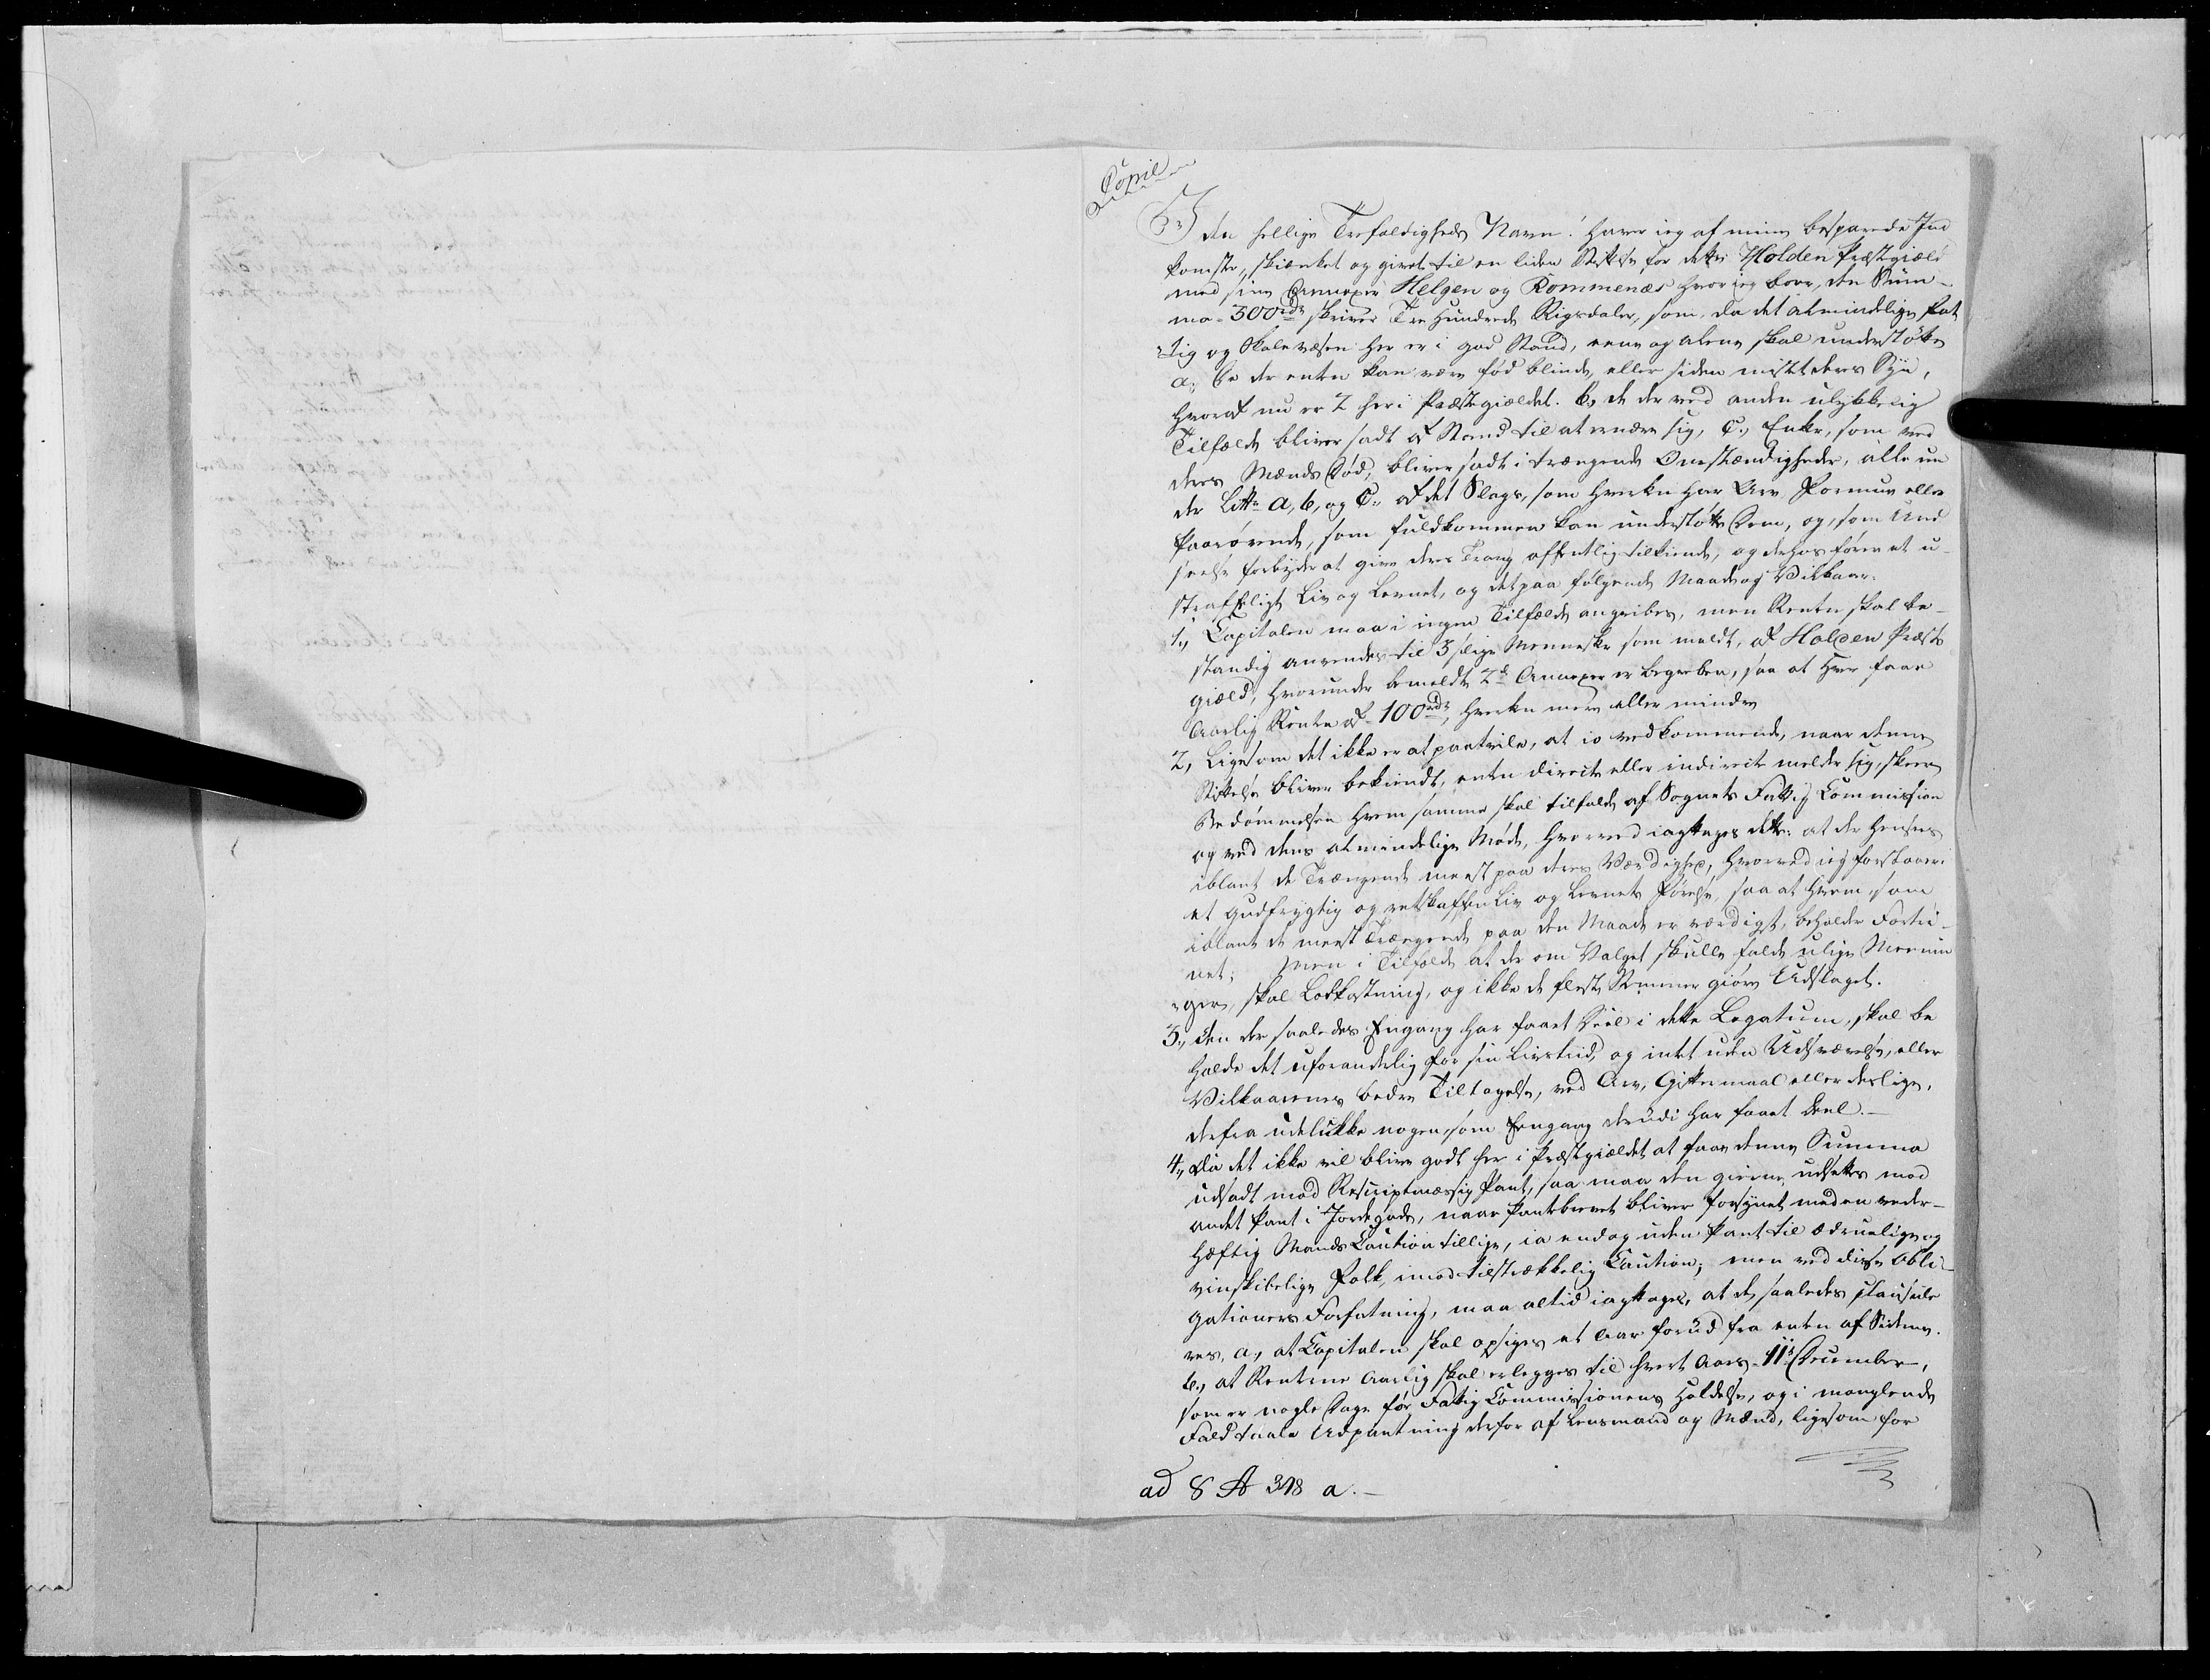 Copie
I den hellige Trefoldigheds Navn! haver ieg af mine besparede Ind
komster, skienket og givet til en liden Stiftelse for dette Holden Præstegiæld
med sine Annexer Helgen og Rommenæs hvor ieg boer, den Sum-
ma 300 rdr skriver Tre Hundrede Rigsdaler, som, da det almindelige Fat
tig og Skolevæsen her er i god Stand, eene og alene skal understøtte
a, De der enten kan være fød blinde, eller siden mistet deres Syn,
hvoraf nu er 2 her i Præstegiældet. b, de der ved anden ulykkelig
Tilfælde bliver sadt af Stand til at ernære sig, C, Enker, som ved
deres Mænds Død, bliver sadt i trængende Omstændigheder, alle un
der Littr a, b, og C, af det Slags, som hverken har Arv Formue eller
Paarørende, som fuldkommen kan understøtte dem, og, som Und
seelse forbyder at give deres Trang offentlig tilkiende, og derhos fører et u-
straffeligt Liv og Levnet, og det paa følgende Maade og Vilkaar.
1, Capitalen maa i ingen Tilfælde angribes, men Renten skal be-
standig anvendes til 3 slige Mennesker som meldt, af Holden Præste
giæld, hvorunder bemeldte 2de Annexer er begreben, saa at hver faar
Aarlig Renten af 100 rdr, hverken meer eller mindre
2, Ligesom det ikke er at paatvile, at io vedkommende, naar denne
Stiftelse bliver bekiendt, enten directe eller indirecte melder sig, skeer
Bedømmelsen hvem samme skal tilfalde af Sognets Fattig Commission
og ved dens almindelige Møde, hvorved iagttages dette: at der henses
iblant de Trængende meest paa deres Værdighed, hvorved ieg forstaaer
et Gudfrygtig og retskaffen Liv og Levnets Førelse, saa at hvem, som
iblant de meest Trængende paa den Maade er værdigst, beholder Fortri-
net; Men i Tilfælde at der om Valget skulle falde ulige Meenin
ger, skal Lodkastning, og ikke de fleste Stemmer giøre Udslaget.
3, Den der saaledes Engang har faaet Deel i dette Legatum, skal be
holde det uforanderlig for sin Livstiid, og intet uden Udsvævelse, eller
Vilkaarenes bedre Tiltagelse, ved Arv, Giftermaal eller deslige,
derfra udelukke nogen, som Eengang derudi har faaet Deel.-
4, Da det ikke vil blive godt her i Præstegiældet at faae denne Summa
udsadt mod Rescriptmæssig Pant, saa maa den gierne udsettes mod
andet Pant i Jordegods, naar Pantebrevet bliver forsynet med en veder-
hæftig Mands Caution tillige, ia endog uden Pant til ædruelige og
vinskibelige Folk, imod tilstrækkelig Caution; men ved disse Obli-
gationers Forfatning, maa altid iagttages, at de saaledes clausule
res, a, at Capitalen skal opsiges et Aar forud fra enten af Siderne.
b, at Renterne Aarlig skal erlegges til hvert Aars 11te December,
som er nogle Dage før Fattig Commissionens Holdelse, og i manglende
Fald taale Udpantning derfor af Lensmand og Mænd, ligesom for
ad 8 A 318 a.-